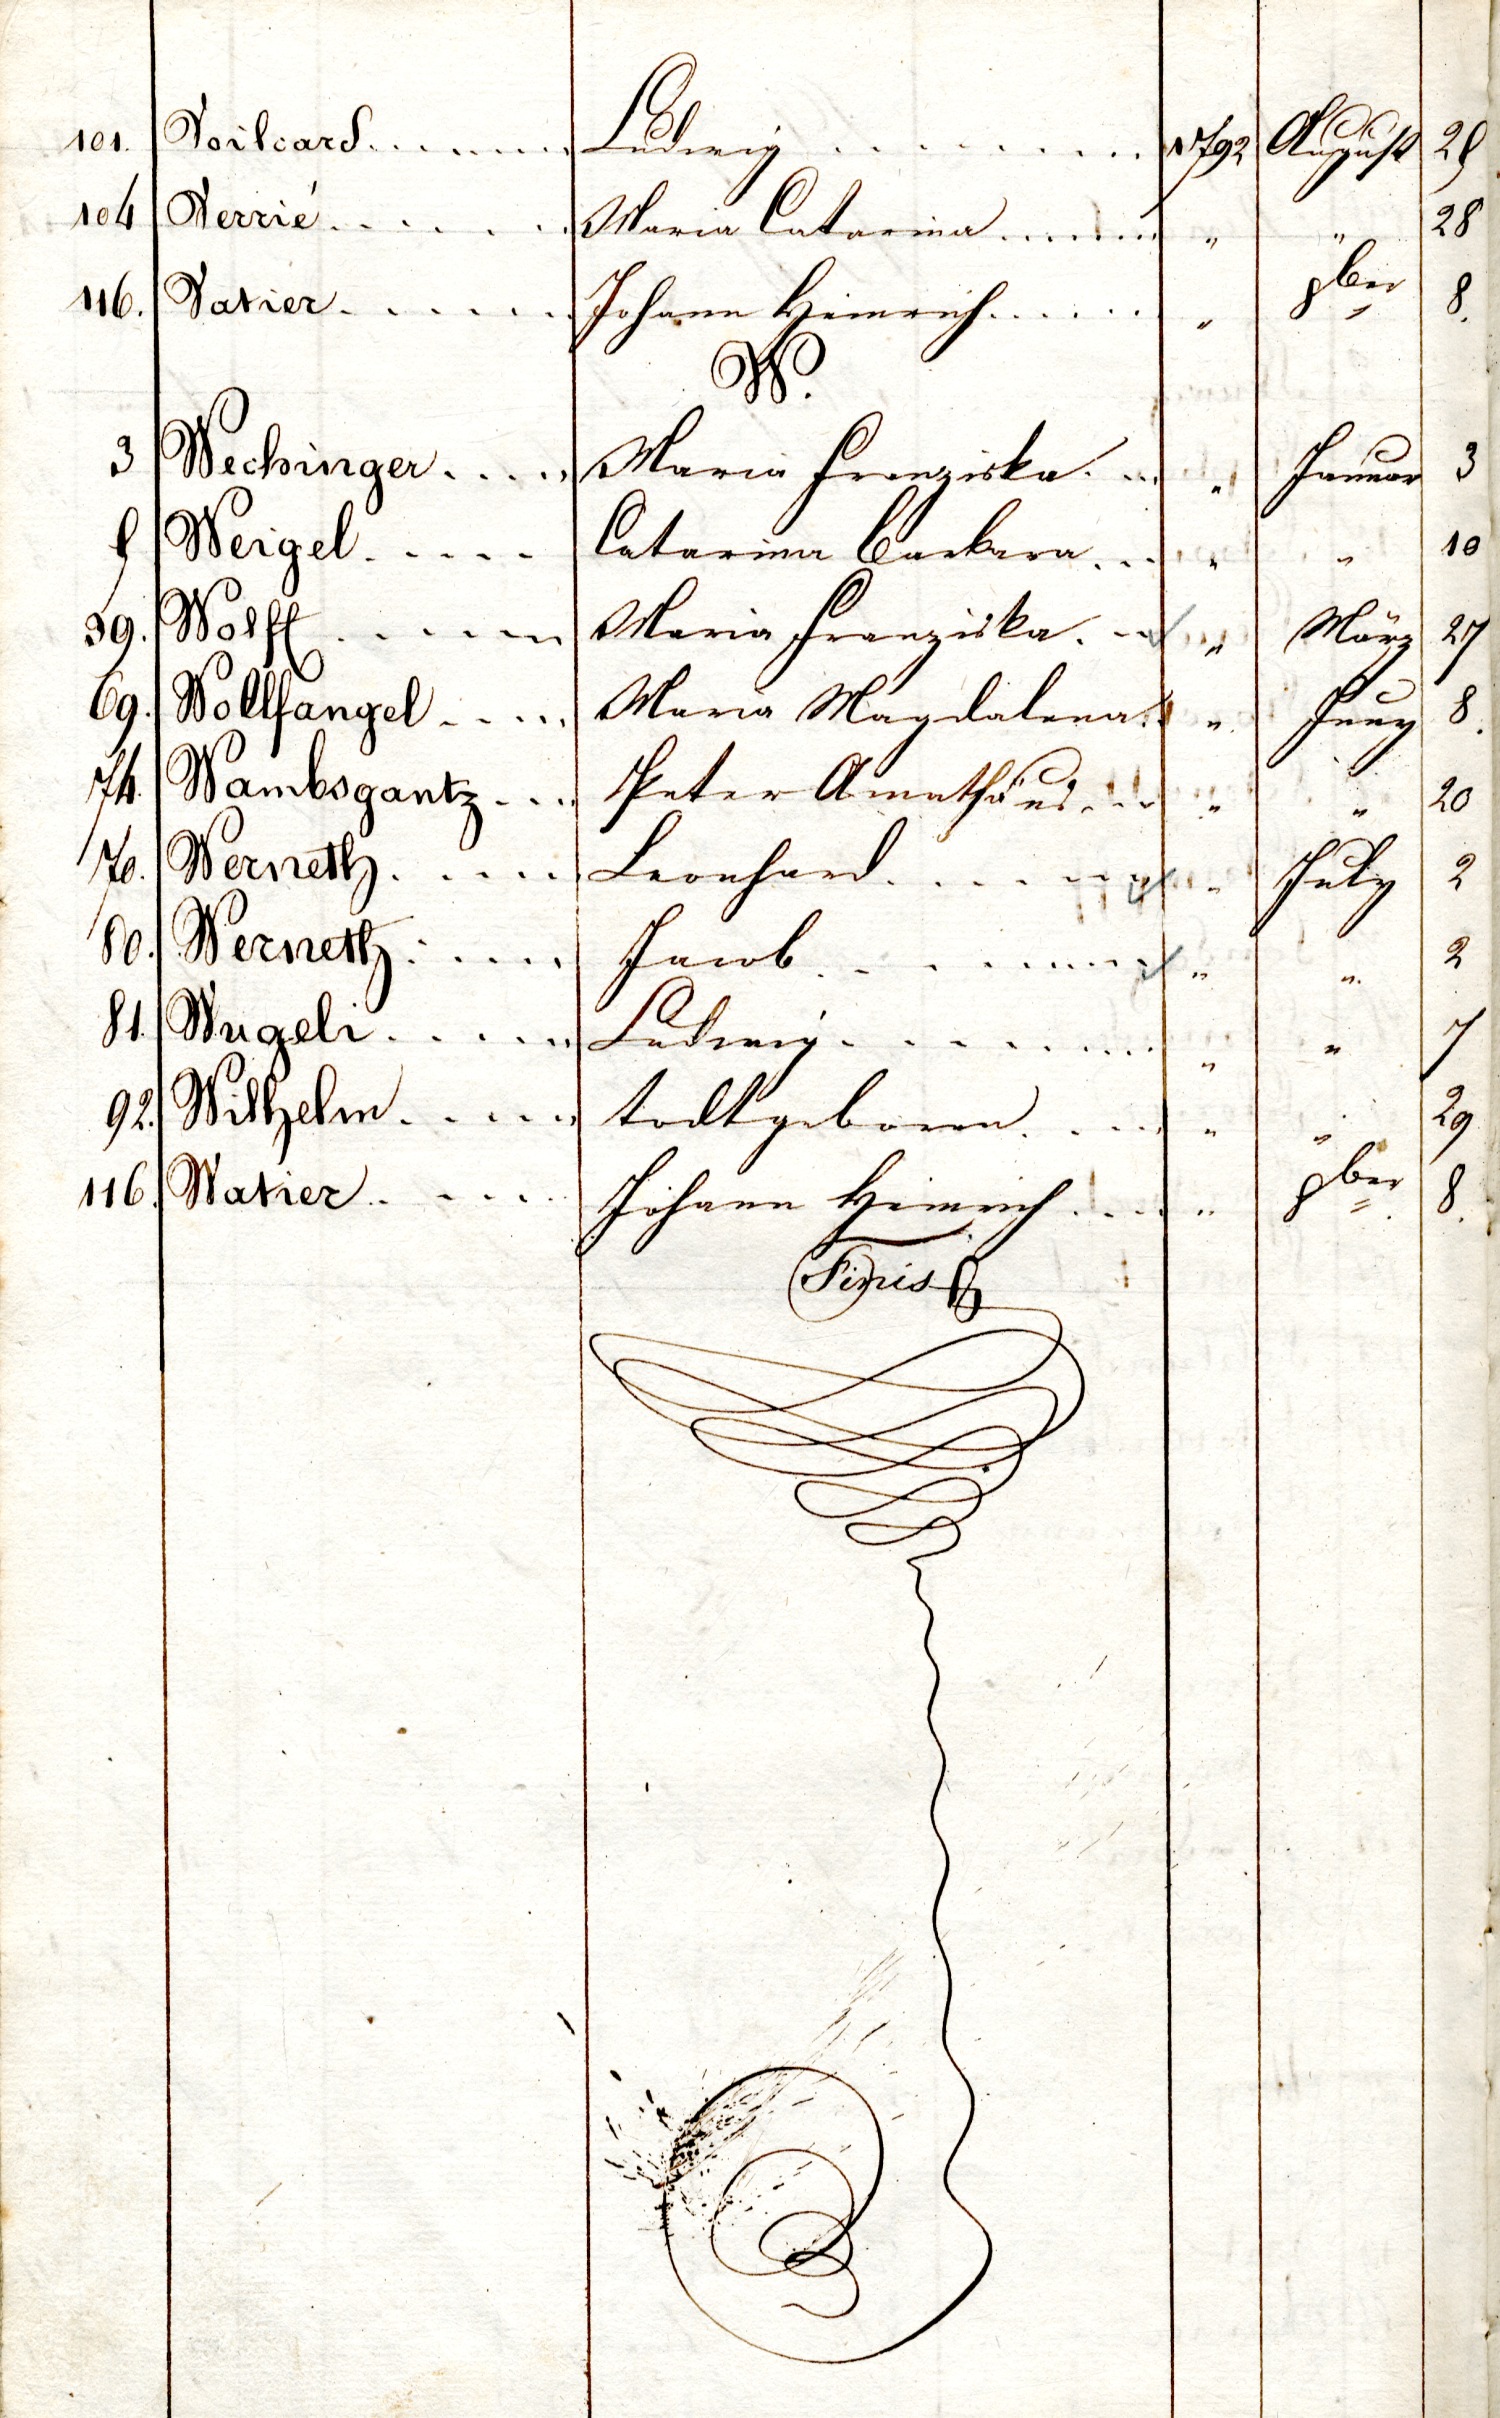 101. Voilcard Ludwig 1792 August 25
104 Verrié Maria Catarina " " 28
116. Vatier Johann Heinrich " 9ber 8.
W.
3 Wechinger Maria Franziska " Januar 3
5 Weigel Catarina Barbara " " 10
39. Wolff Maria Franziska " März 27
69. Wollfangel Maria Magdalena " Juny 8.
74. Wambsgantz Peter Amathäus " " 20
76. Werneth Leonhard " July 2
80. Werneth Jacob " " 2
81. Wugeli Ludwig " " 7
92. Wilhelm todtgeboren " " 29
116. Watier Johann Heinrich " 9ber 8.
Finis